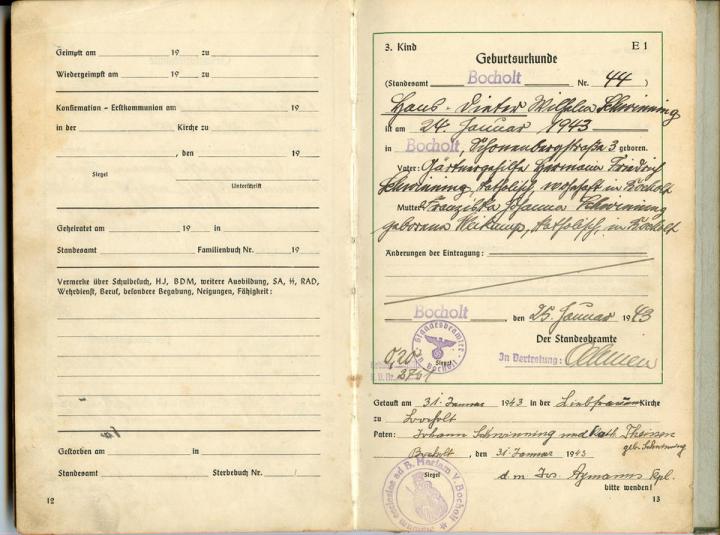 Geimpft am 19 zu
Wiedergeimpft am 19 zu
Konfirmation - Erstkommunion am 19
in der Kirche zu
, den 19
Siegel
Unterschrift
Geheiratet am 19 in
Standesamt Familienbuch Nr. 19
Vermerke über Schulbesuch, HJ, BDM, weitere Ausbildung, SA, ᛋᛋ, RAD,
Wehrdienst, Beruf, besondere Begabung, Neigungen, Fähigkeit:
Gestorben am in
Standesamt Sterbebuch Nr.
12
3. Kind E 1
Geburtsurkunde
(Standesamt Bocholt Nr. 44 )
Hans-Dieter Wilhelm Schwinning
ist am 24. Januar 1943
in Bocholt, Schonenbergstraße 3 geboren.
Vater: Gärtnergehilfe Hermann Friedrich
Schwinning, katholisch, wohnhaft in Bocholt
Mutter: Franziska Johanna Schwinning
geborene, katholisch, in Bocholt
Änderungen der Eintragung:
Bocholt, den 25. Januar 1943
Der Standesbeamte
Siegel In Vertretung:
Standesbeamter in Bocholt
0,20
Getauft am 31. Januar 1943 in der Liebfrauen Kirche
zu Bocholt
Paten: Johann Schwinning und Kath. Theissen
geb. Schwinning
Bocholt, den 31. Januar 1943
Siegel d. m. Jos. Aymanns Kpl.
bitte wenden!
ad B. Mariam V. Bocholt
13